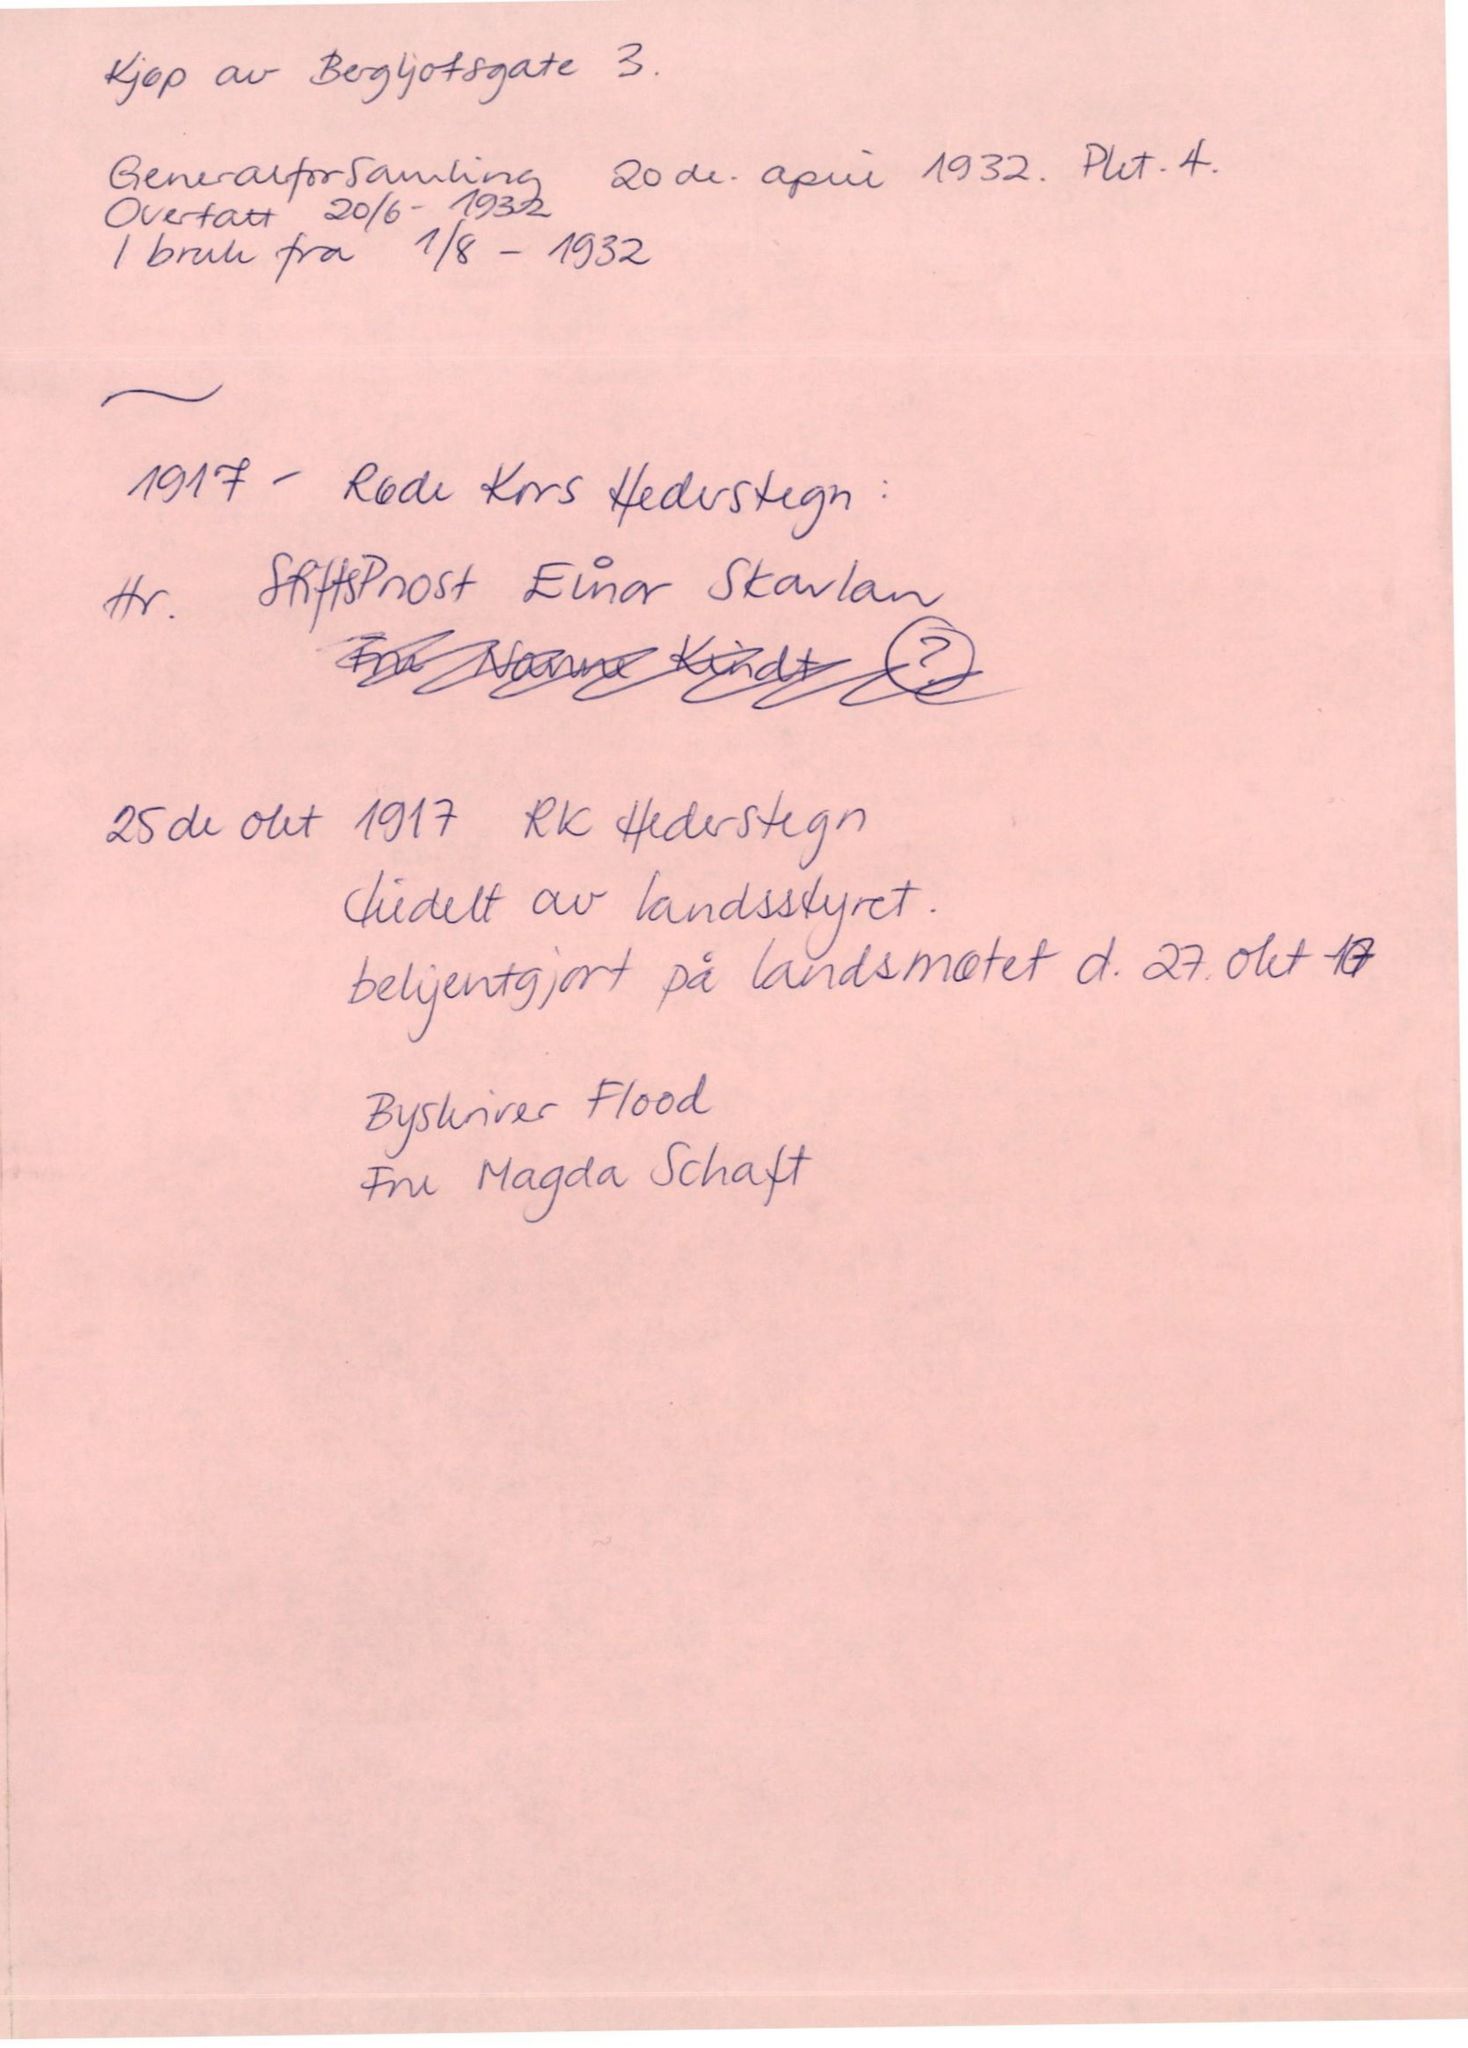 Kjøp av Bergljotsgate 3.
Generalforsamling 20de. april 1932. Pkt. 4.
Overtatt 20/6 - 1932
I bruk fra 1/8 - 1932
1917 - Røde Kors Hederstegn:
Hr. Stiftsprost Einar Skavlan
Fru Nanna Kindt ?
25de okt 1917 RK Hederstegn
tildelt av landsstyret.
bekjentgjort på landsmøtet d. 27. okt 17
Byskriver Flood
Fru Magda Schaft